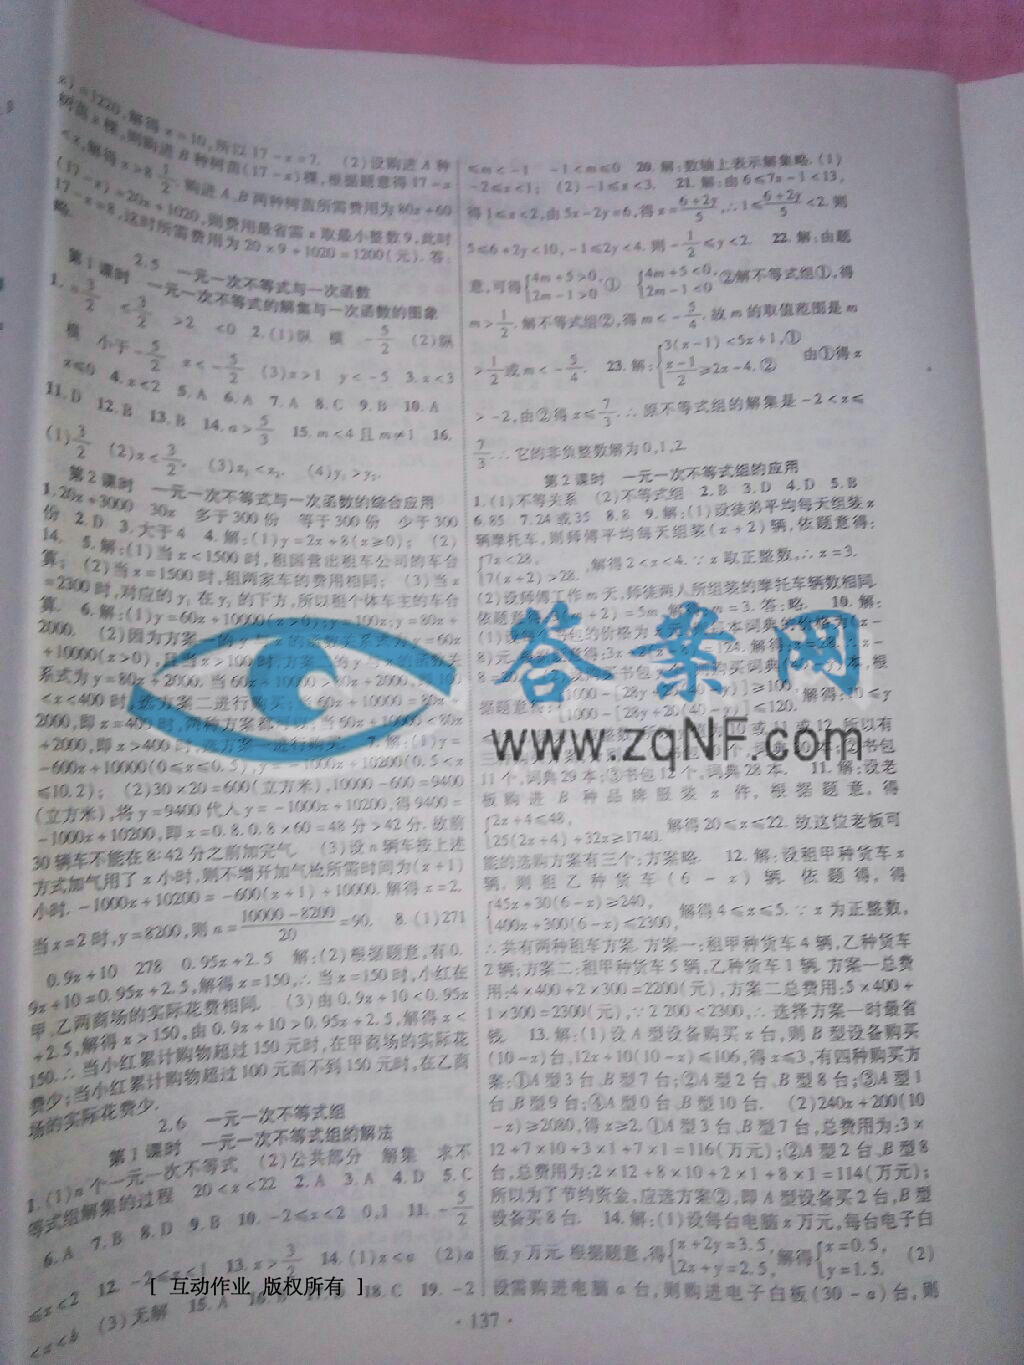 z)=1220,解得z=10,所以17-z=7. (2)设购进A种
树苗z棵,则购进B种树苗(17-z)棵,根据题意得17-z
<z,解得z>8 1/2.购进A、B两种树苗所需费用为80z+60
(17-z)=20z+1020,则费用最省需z取最小整数9,此时
17-z=8,这时所需费用为20×9+1020=1200(元).答:
略.
2.5 一元一次不等式与一次函数
第1课时 一元一次不等式的解集与一次函数的图象
1.=3/2 <3/2 >2 <0 2.(1)纵 横 -5/2 (2)纵
横 小于-5/2 z<-5/2 (3)z>1 y<-5 3.z<3
z≤0 4.z<2 5.A 6.A 7.A 8.C 9.B 10.A
11.D 12.B 13.B 14.a>5/3 15.m<4且m≠1 16.
(1)3/2 (2)z<3/2. (3)z₁<z₂. (4)y₁>y₂.
第2课时 一元一次不等式与一次函数的综合应用
1.20z+3000 30z 多于300份 等于300份 少于300
份 2.D 3.大于4 4.解:(1)y=2x+8(z≥0); (2)
14. 5.解:(1)当z<1500时,租国营出租车公司的车合
算; (2)当z=1500时,租两家车的费用相同; (3)当z
=2300时,对应的y₁在y₂的下方,所以租个体车主的车合
算. 6.解:(1)y=60z+10000(z>0);y=100z;y=80z+
2000. (2)因为方案一的y与z的函数关系式为y=60z
+10000(z>0),且当z>100时,方案二的y与z的函数关
系式为y=80z+2000.当60z+10000>80z+2000,即100
<z<400时,选方案二进行购买;当60z+10000=80z+
2000,即z=400时,两种方案都可以;当60z+10000<80z
+2000,即z>400时,选方案一进行购买. 7.解:(1)y=
-600z+10000(0≤z≤0.5),y=-1000z+10200(0.5<z
≤10.2); (2)30×20=600(立方米),10000-600=9400
(立方米),将y=9400代入y=-1000z+10200,得9400=
-1000z+10200,即z=0.8.0.8×60=48分>42分.故前
30辆车不能在8:42分之前加完气. (3)设n辆车按上述
方式加气用了z小时,则不增开加气枪所需时间为(z+1)
小时.-1000z+10200=-600(z+1)+10000.解得z=2.
当z=2时,y=8200,则n=(10000-8200)/20=90. 8.(1)271
0.9z+10 278 0.95z+2.5 解:(2)根据题意,有0.
9z+10=0.95z+2.5,解得z=150,∴当z=150时,小红在
甲、乙两商场的实际花费相同. (3)由0.9z+10<0.95z
+2.5,解得z>150,由0.9z+10>0.95z+2.5,解得z<
150.∴当小红累计购物超过150元时,在甲商场的实际花
费少;当小红累计购物超过100元而不到150元时,在乙商
场的实际花费少.
2.6 一元一次不等式组
第1课时 一元一次不等式组的解法
1.(1)几个一元一次不等式 (2)公共部分 解集 求不
等式组解集的过程 20<z<22 2.A 3.A 4.D 5.C
6.A 7.B 8.D 9.B 10.-2≤z<2 0,1 11.-5/2
≤z≤2 12.-2≤z<1 13.z>3/2 14.(1)z<a (2)a
<z<b (3)无解 15.A 18.C 19.-2
≤m<-1 -1<m≤0 20.解:数轴上表示解集略.(1)
-2≤z<1; (2)-1≤z<3. 21.解:由6≤7z-1<13,
得1≤z<2,由5z-2y=6,得z=(6+2y)/5,∴1≤(6+2y)/5<2.则
5≤6+2y<10,-1≤2y<4.则-1/2≤y<2. 22.解:由题
意,可得{4m+5>0, 2m-1>0 ① {4m+5<0, 2m-1<0 ②解不等式组①,得
m>1/2.解不等式组②,得m<-5/4.故m的取值范围是m
>1/2或m<-5/4. 23.解:{3(z-1)<5z+1,① (z-1)/2≥2z-4.② 由①得z
>-2,由②得z≤7/3.∴原不等式组的解集是-2<z≤
7/3.∴它的非负整数解为0,1,2.
第2课时 一元一次不等式组的应用
1.(1)不等关系 (2)不等式组 2.B 3.D 4.D 5.B
6.85 7.24或35 8.8 9.解:(1)设徒弟平均每天组装z
辆摩托车,则师傅平均每天组装(z+2)辆,依题意得:
{7z<28, 7(z+2)>28. ,解得2<z<4.∵z取正整数,∴z=3.
(2)设师傅工作m天,师徒两人所组装的摩托车辆数相同.
依题意得:3(m+2)=5m,解得:m=3.答:略. 10.解:
(1)设每个书包的价格为z元,则每本词典的价格为(z-
8)元.根据题意得:3z+2(z-8)=124.解得:z=28.∴z-
8=20. (2)设购买书包y个,则购买词典(40-y)本,根
据题意得:{1000-[28y+20(40-y)]≥100, 1000-[28y+20(40-y)]≤120. 解得:10≤y
11个,词典29本;③书包12个,词典28本. 11.解:设老
板购进B种品牌服装z件,根据题意,得
{2z+4≤48, 25(2z+4)+32z≥1740. 解得20≤z≤22.故这位老板可
能的选购方案有三个:方案略. 12.解:设租甲种货车z
辆,则租乙种货车(6-z)辆.依题得,得
{45z+30(6-z)≥240, 400z+300(6-z)≤2300, 解得4≤z≤5.∵z为正整数,
∴共有两种租车方案.方案一:租甲种货车4辆,乙种货车
2辆;方案二:租甲种货车5辆,乙种货车1辆.方案一总费
用:4×400+2×300=2200(元),方案二总费用:5×400+
1×300=2300(元),∵2200<2300,∴选择方案一时最省
钱. 13.解:(1)设A型设备购买z台,则B型设备购买
(10-z)台,12z+10(10-z)≤106,得z≤3,有四种购买方
案:①A型3台、B型7台;②A型2台、B型8台;③A型1
台、B型9台;④A型0台、B型10台. (2)240z+200(10
-z)≥2080,得z≥2.①A型3台、B型7台,总费用为:3×
12+7×10+3×1+7×1=116(万元);②A型2台、B型8
台,总费用为:2×12+8×10+2×1+8×1=114(万元);
所以为了节约资金,应选方案②,即A型设备买2台、B型
设备买8台. 14.解:(1)设每台电脑z万元,每台电子白
板y万元.根据题意,得{z+2y=3.5, 2z+y=2.5, 解得{z=0.5, y=1.5. (2)
设需购进电脑a台,则购进电子白板(30-a)台,则
·137·
答案网
www.zqNF.com
[ 互动作业 版权所有 ]